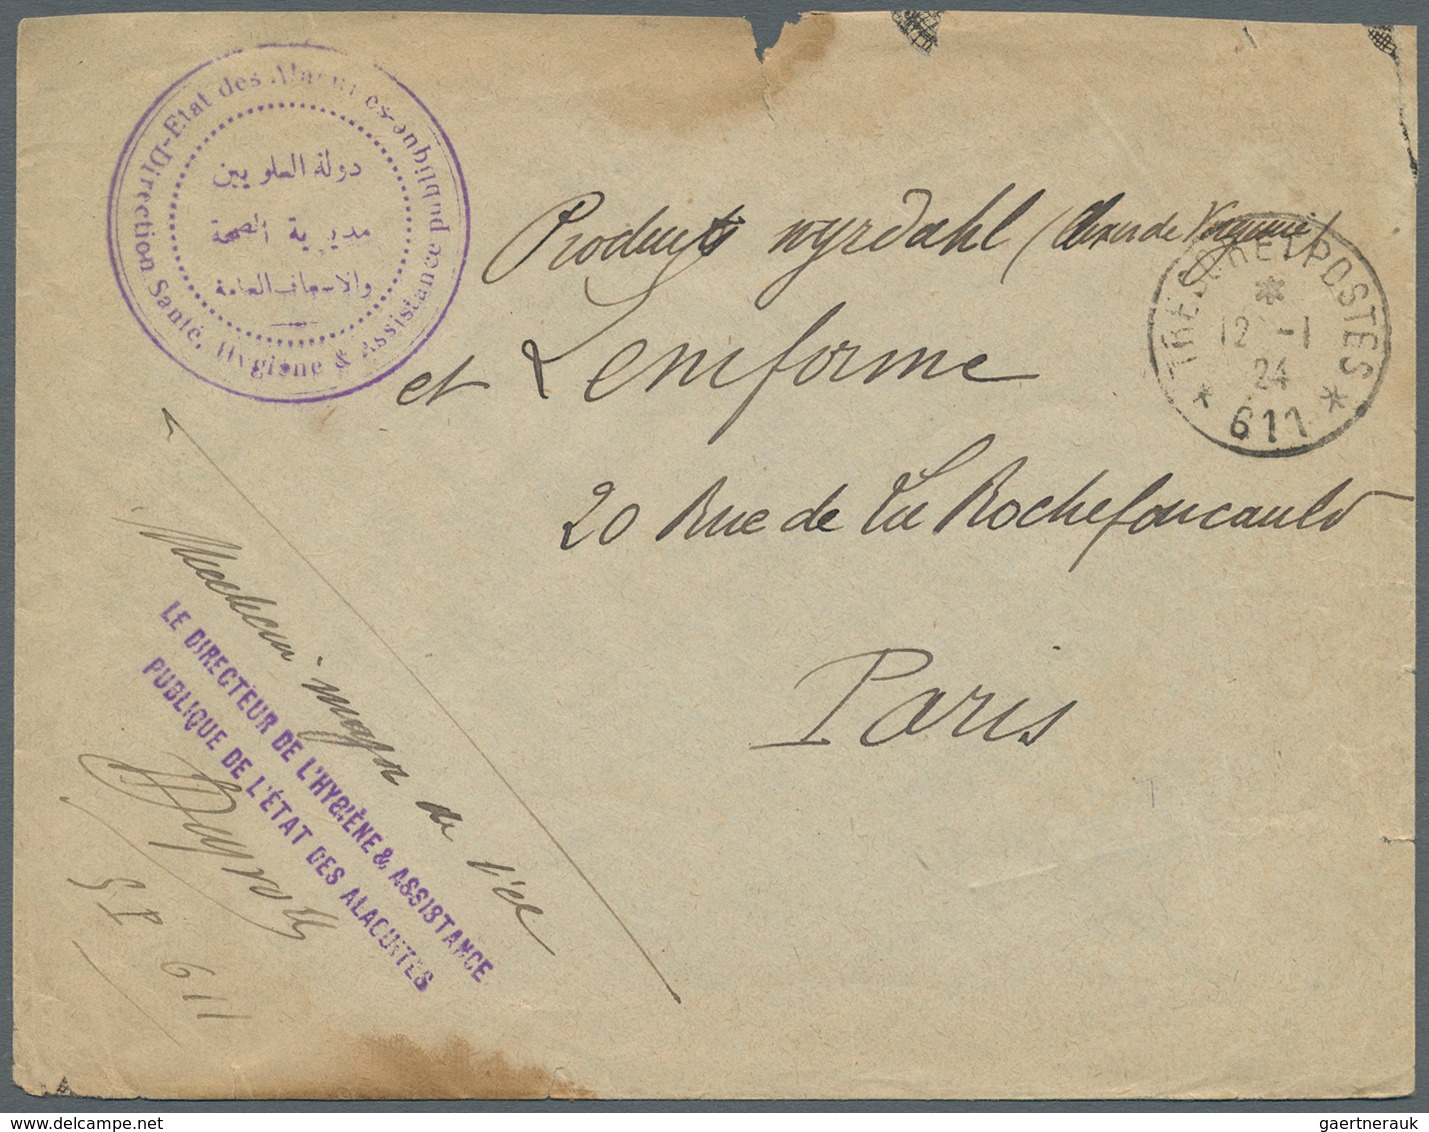 Direction Santé, Hygiène & Assistance publique-Etat des Alaouites-
دولة العلويين
مديرية الصحة
والاسعاف العامة
Produits nyrdahl
et Leniforme
20 Rue de La Rochefoucauld
Paris
TRESOR ET POSTES
12 -1
24
* 611 *
Medecin major de l'ee
LE DIRECTEUR DE L'HYGIÈNE & ASSISTANCE
PUBLIQUE DE L'ÉTAT DES ALAOUITES
S P 611
www.delcampe.net
gaertnerauk